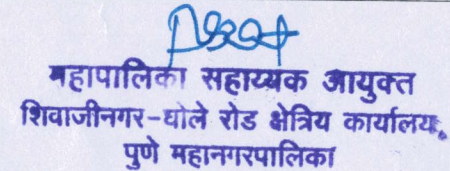 महापालिका सहाय्यक आयुक्त
शिवाजीनगर-घोले रोड क्षेत्रिय कार्यालय,
पुणे महानगरपालिका